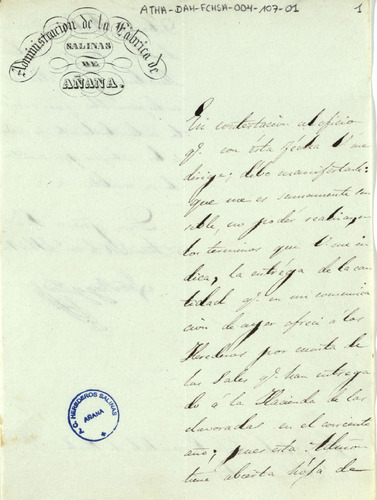 ATHA-DAH-FCHSA-004-107-01
1
Administracion de la Fábrica de
SALINAS
DE
AÑANA.
En contestacion al oficio
qe. con esta fecha V. me
dirige; debo manifestarle:
que me es sumamente sen
sible, no poder realizar, en
los terminos que V. me in
dica, la entréga de la can
tidad qe. en mi comunica
cion de ayer ofreci á los
Herederos por cuenta de
las Sales qe. han entrega
do á la Hacienda de las
elavoradas en el corriente
año; pues esta
tiene abierta hója de
T. C. HEREDEROS SALINAS
AÑANA